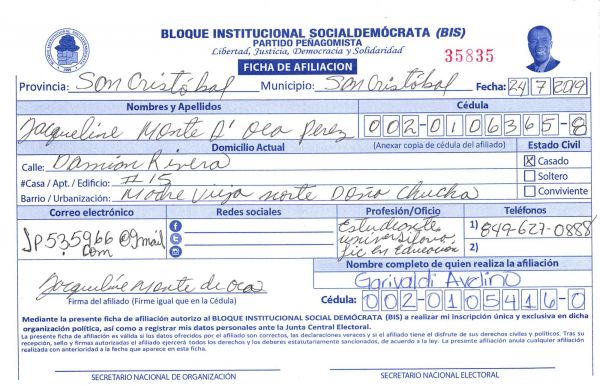 BLOQUE INSTITUCIONAL SOCIALDEMÓCRATA (BIS)
PARTIDO PEÑAGOMISTA
Libertad, Justicia, Democracia y Solidaridad
35835
FICHA DE AFILIACION
Provincia: San Cristóbal Municipio: San Cristóbal Fecha: 24/7/2019
Nombres y Apellidos Cédula
Jacqueline Monte D' Oca Perez 002-0106365-8
Domicilio Actual (Anexar copia de cédula del afiliado) Estado Civil
Calle: Damian Rivera X Casado
#Casa / Apt. / Edificio: #15 Soltero
Barrio / Urbanización: Madre Vieja norte Doña Chucha Conviviente
Correo electrónico Redes sociales Profesión/Oficio Teléfonos
Jp535966@gmail.com Estudiante universitaria Lic en Educación 1) 849-627-0888
2)
Nombre completo de quien realiza la afiliación
Garivaldi Avelino
Jacqueline Monte de oca
Firma del afiliado (Firme igual que en la Cédula) Cédula: 002-0105416-0
Mediante la presente ficha de afiliación autorizo al BLOQUE INSTITUCIONAL SOCIAL DEMÓCRATA (BIS) a realizar mi inscripción única y exclusiva en dicha
organización política, así como a registrar mis datos personales ante la Junta Central Electoral.
La presente ficha de afiliación es válida si los datos ofrecidos por el afiliado son correctos, las declaraciones veraces y si el afiliado tiene el disfrute de sus derechos civiles y políticos. Tras su
recepción, sello y firmas autorizadas el afiliado ejercerá todos los derechos y los deberes estatutariamente sancionados, de acuerdo a la ley. La presente afiliación anula cualquier afiliación
realizada con anterioridad a la fecha que aparece en esta ficha.
SECRETARIO NACIONAL DE ORGANIZACIÓN SECRETARIO NACIONAL ELECTORAL